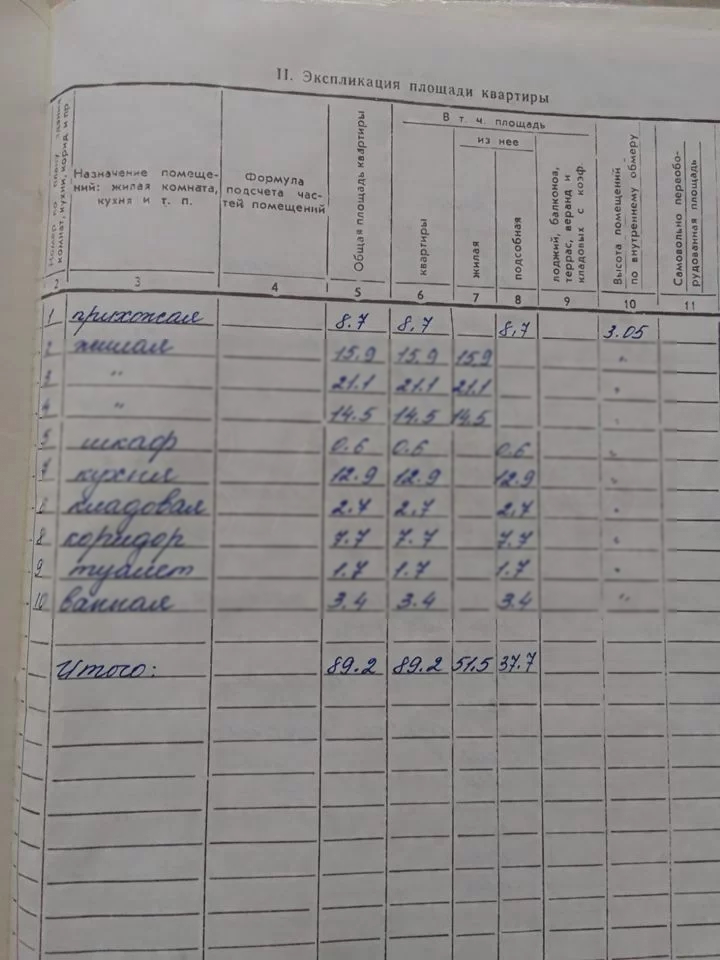 II. Экспликация площади квартиры
Номер по плану здания комнат, кухни, корид и пр
Назначение помеще-
ний: жилая комната,
кухня и т. п.
Формула
подсчета час-
тей помещений
Общая площадь квартиры
В т. ч. площадь
из нее
квартиры
жилая
подсобная
лоджий, балконов,
террас, веранд и
кладовых с коэф.
Высота помещений
по внутреннему обмеру
Самовольно переобо-
рудованная площадь
2 3 4 5 6 7 8 9 10 11
1 прихожая 8.7 8,7 8,7 3.05
2 жилая 15.9 15.9 15.9 "
3 " 21.1 21.1 21.1 "
4 " 14.5 14.5 14.5 "
5 шкаф 0.6 0.6 0.6 "
кухня 12.9 12.9 12.9 "
кладовая 2.7 2,7 2,7 "
8 коридор 7.7 7.7 7.7 "
9 туалет 1.7 1.7 1.7 "
10 ванная 3.4 3.4 3.4 "
Итого: 89.2 89.2 51.5 37.7